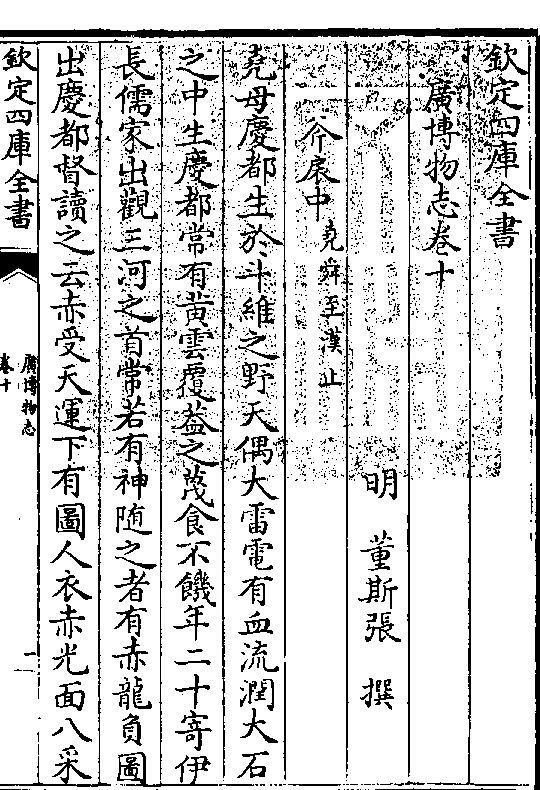 欽定四庫全書
廣博物志卷十
明　董斯張　撰
斧扆中堯舜至漢止
堯母慶都生於斗維之野天偶大雷電有血流潤大石
之中生慶都常有黃雲覆葢之蔑食不饑年二十寄伊
長儒家出觀三河之首常若有神随之者有赤龍負圖
出慶都督讀之云赤受天運下有圖人衣赤光面八采
欽定四庫全書
廣博物志
卷十
一